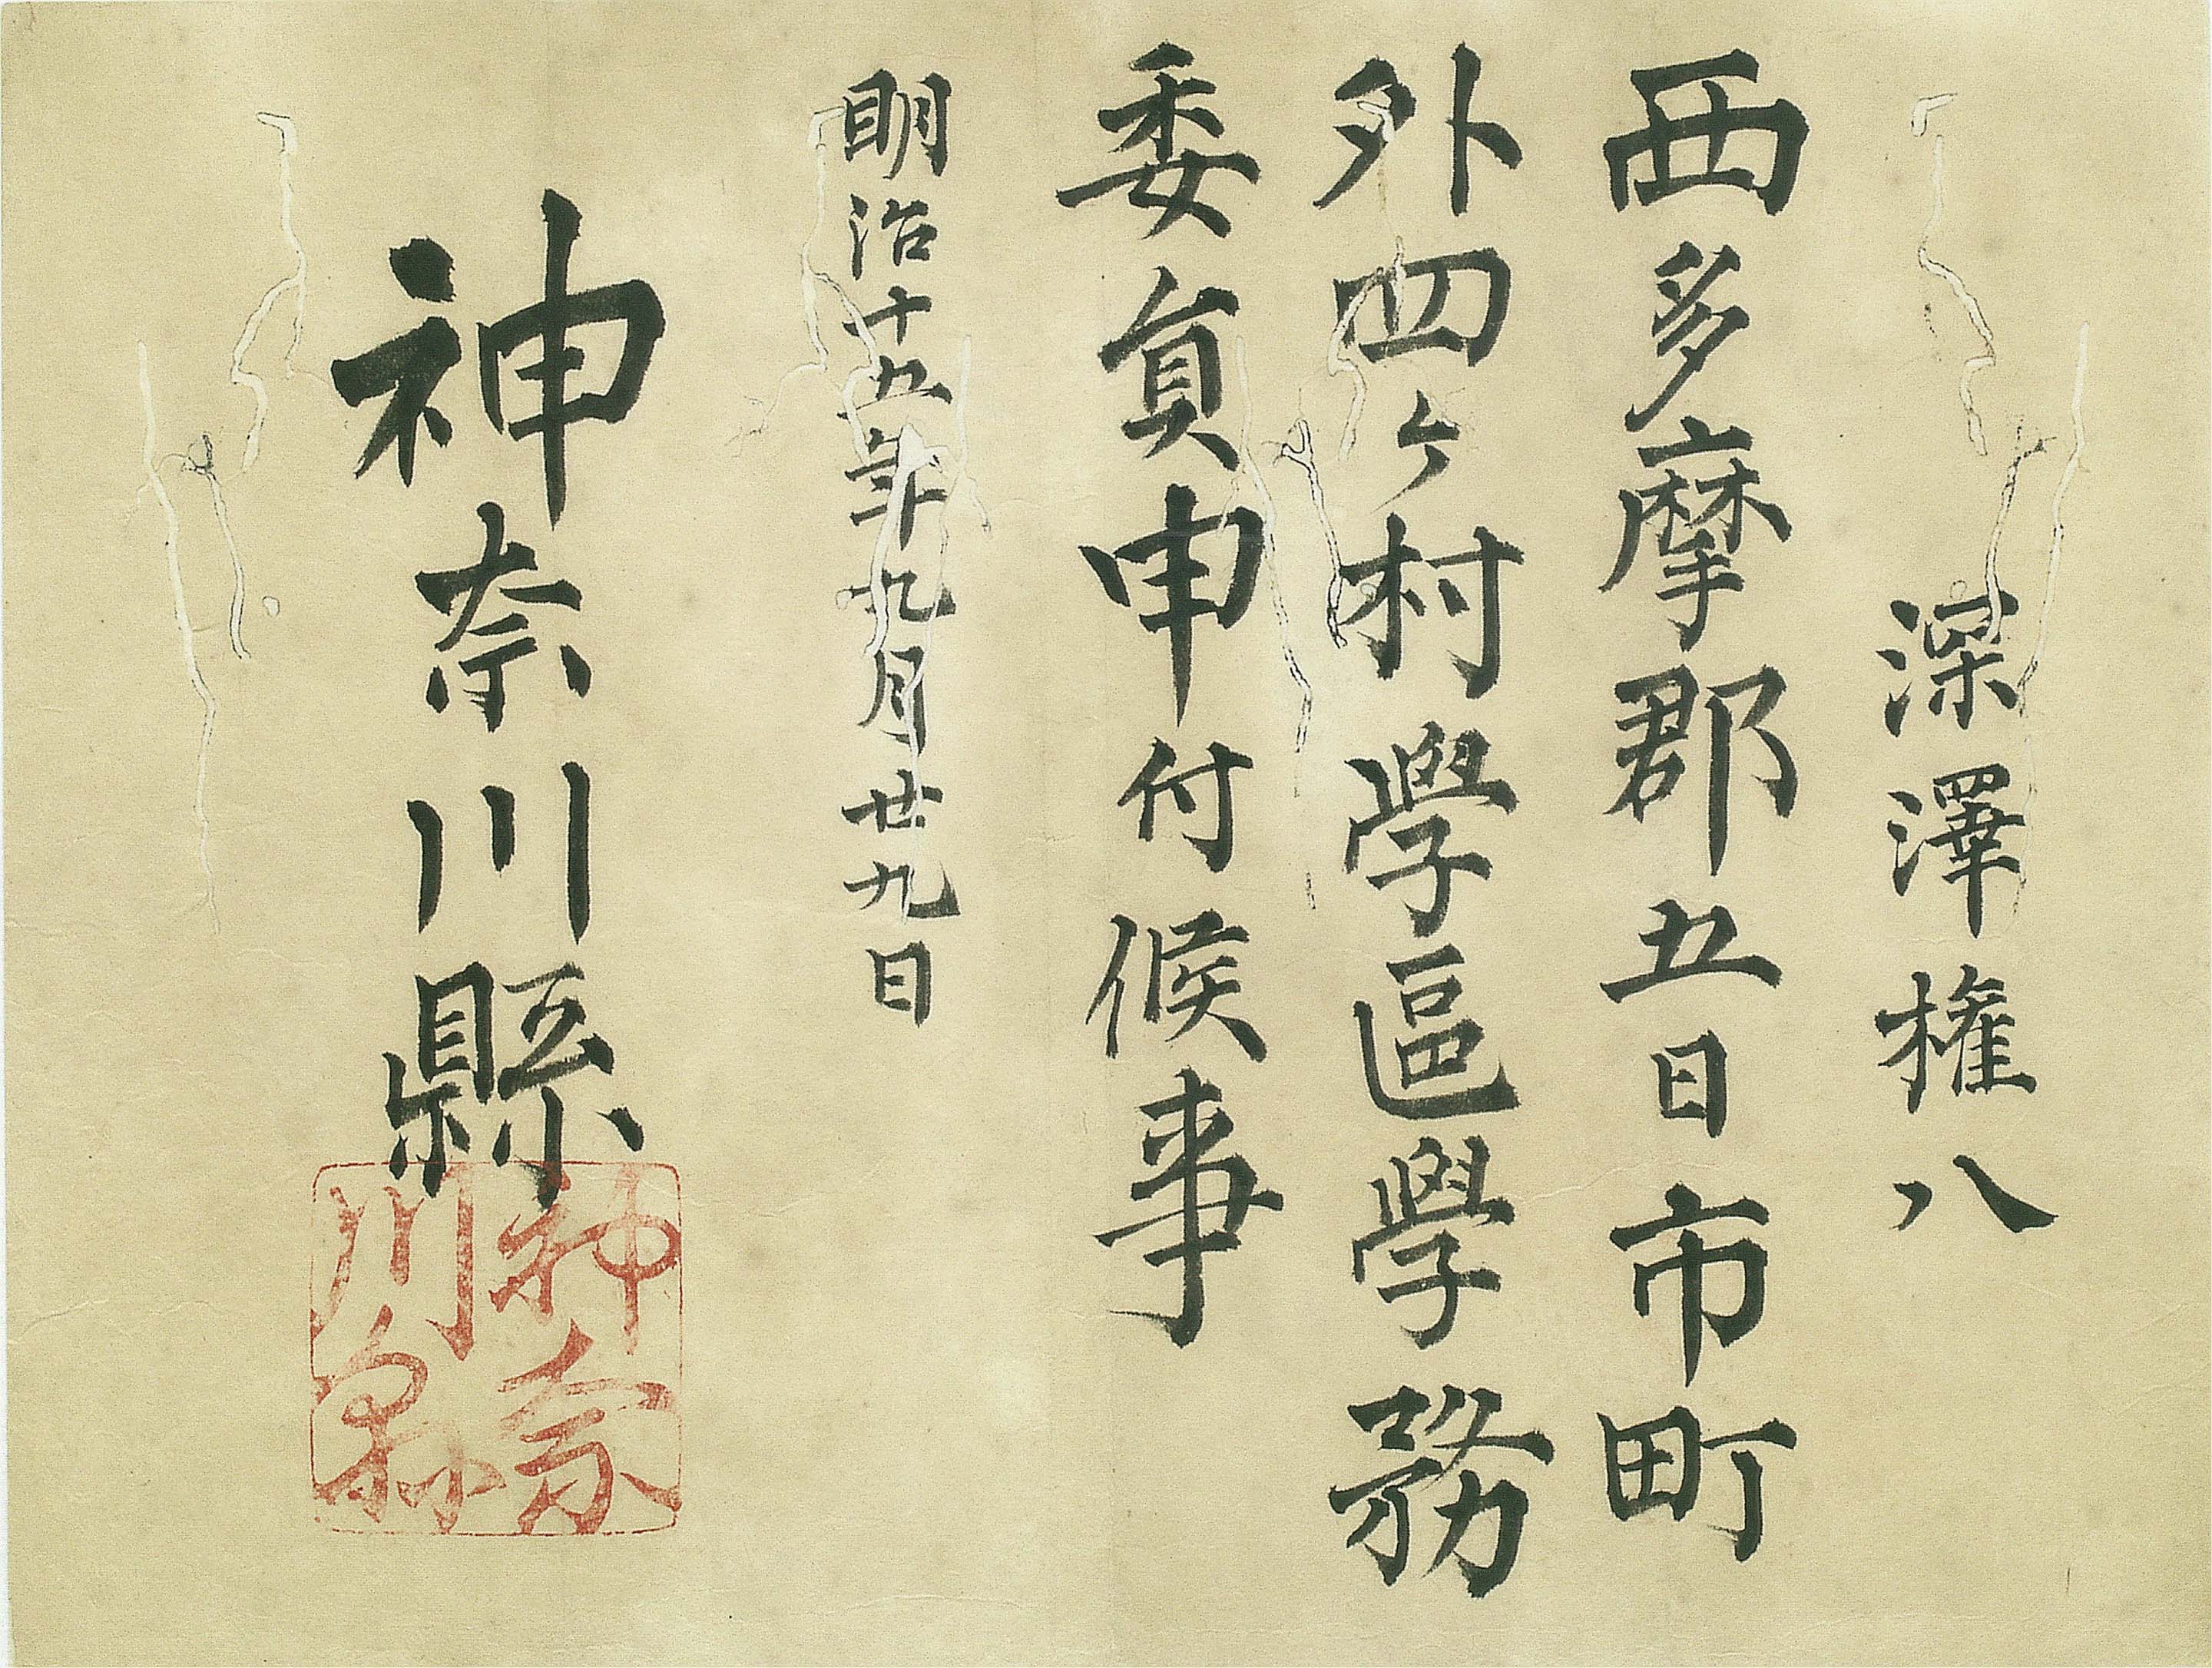 深澤権八
西多摩郡五日市町
外四ケ村學區學務
委員申付候事
明治十五年九月廿九日
神奈川縣
神奈
川縣